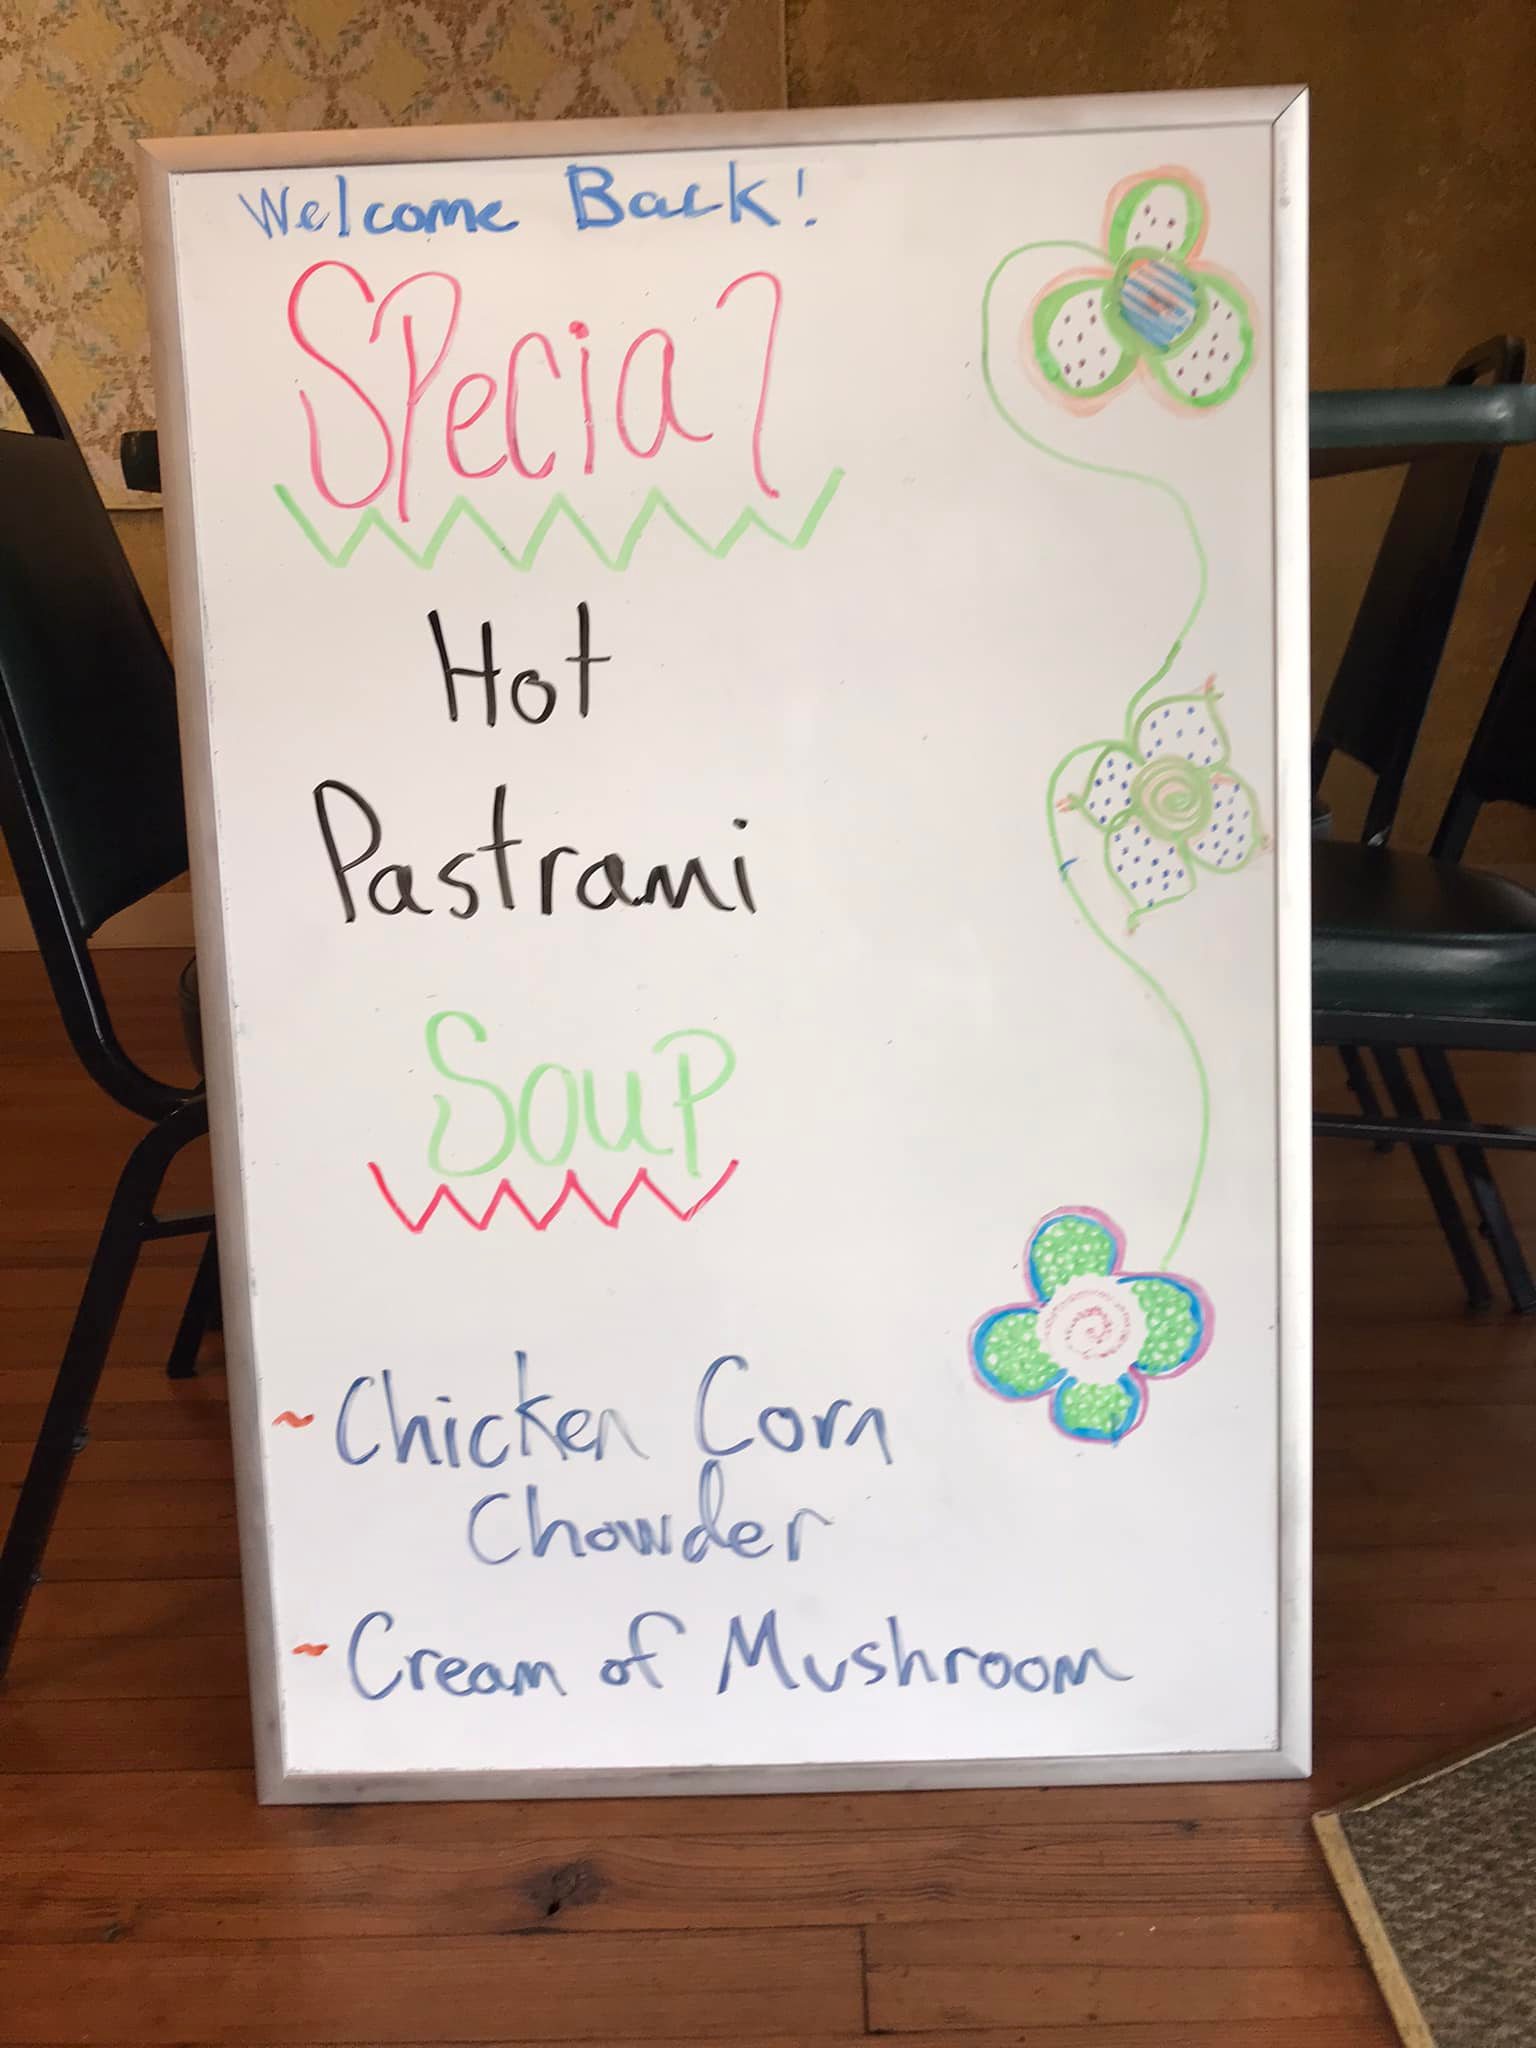 Welcome Back!
Special
Hot
Pastrami
Soup
~Chicken Corn
Chowder
~Cream of Mushroom